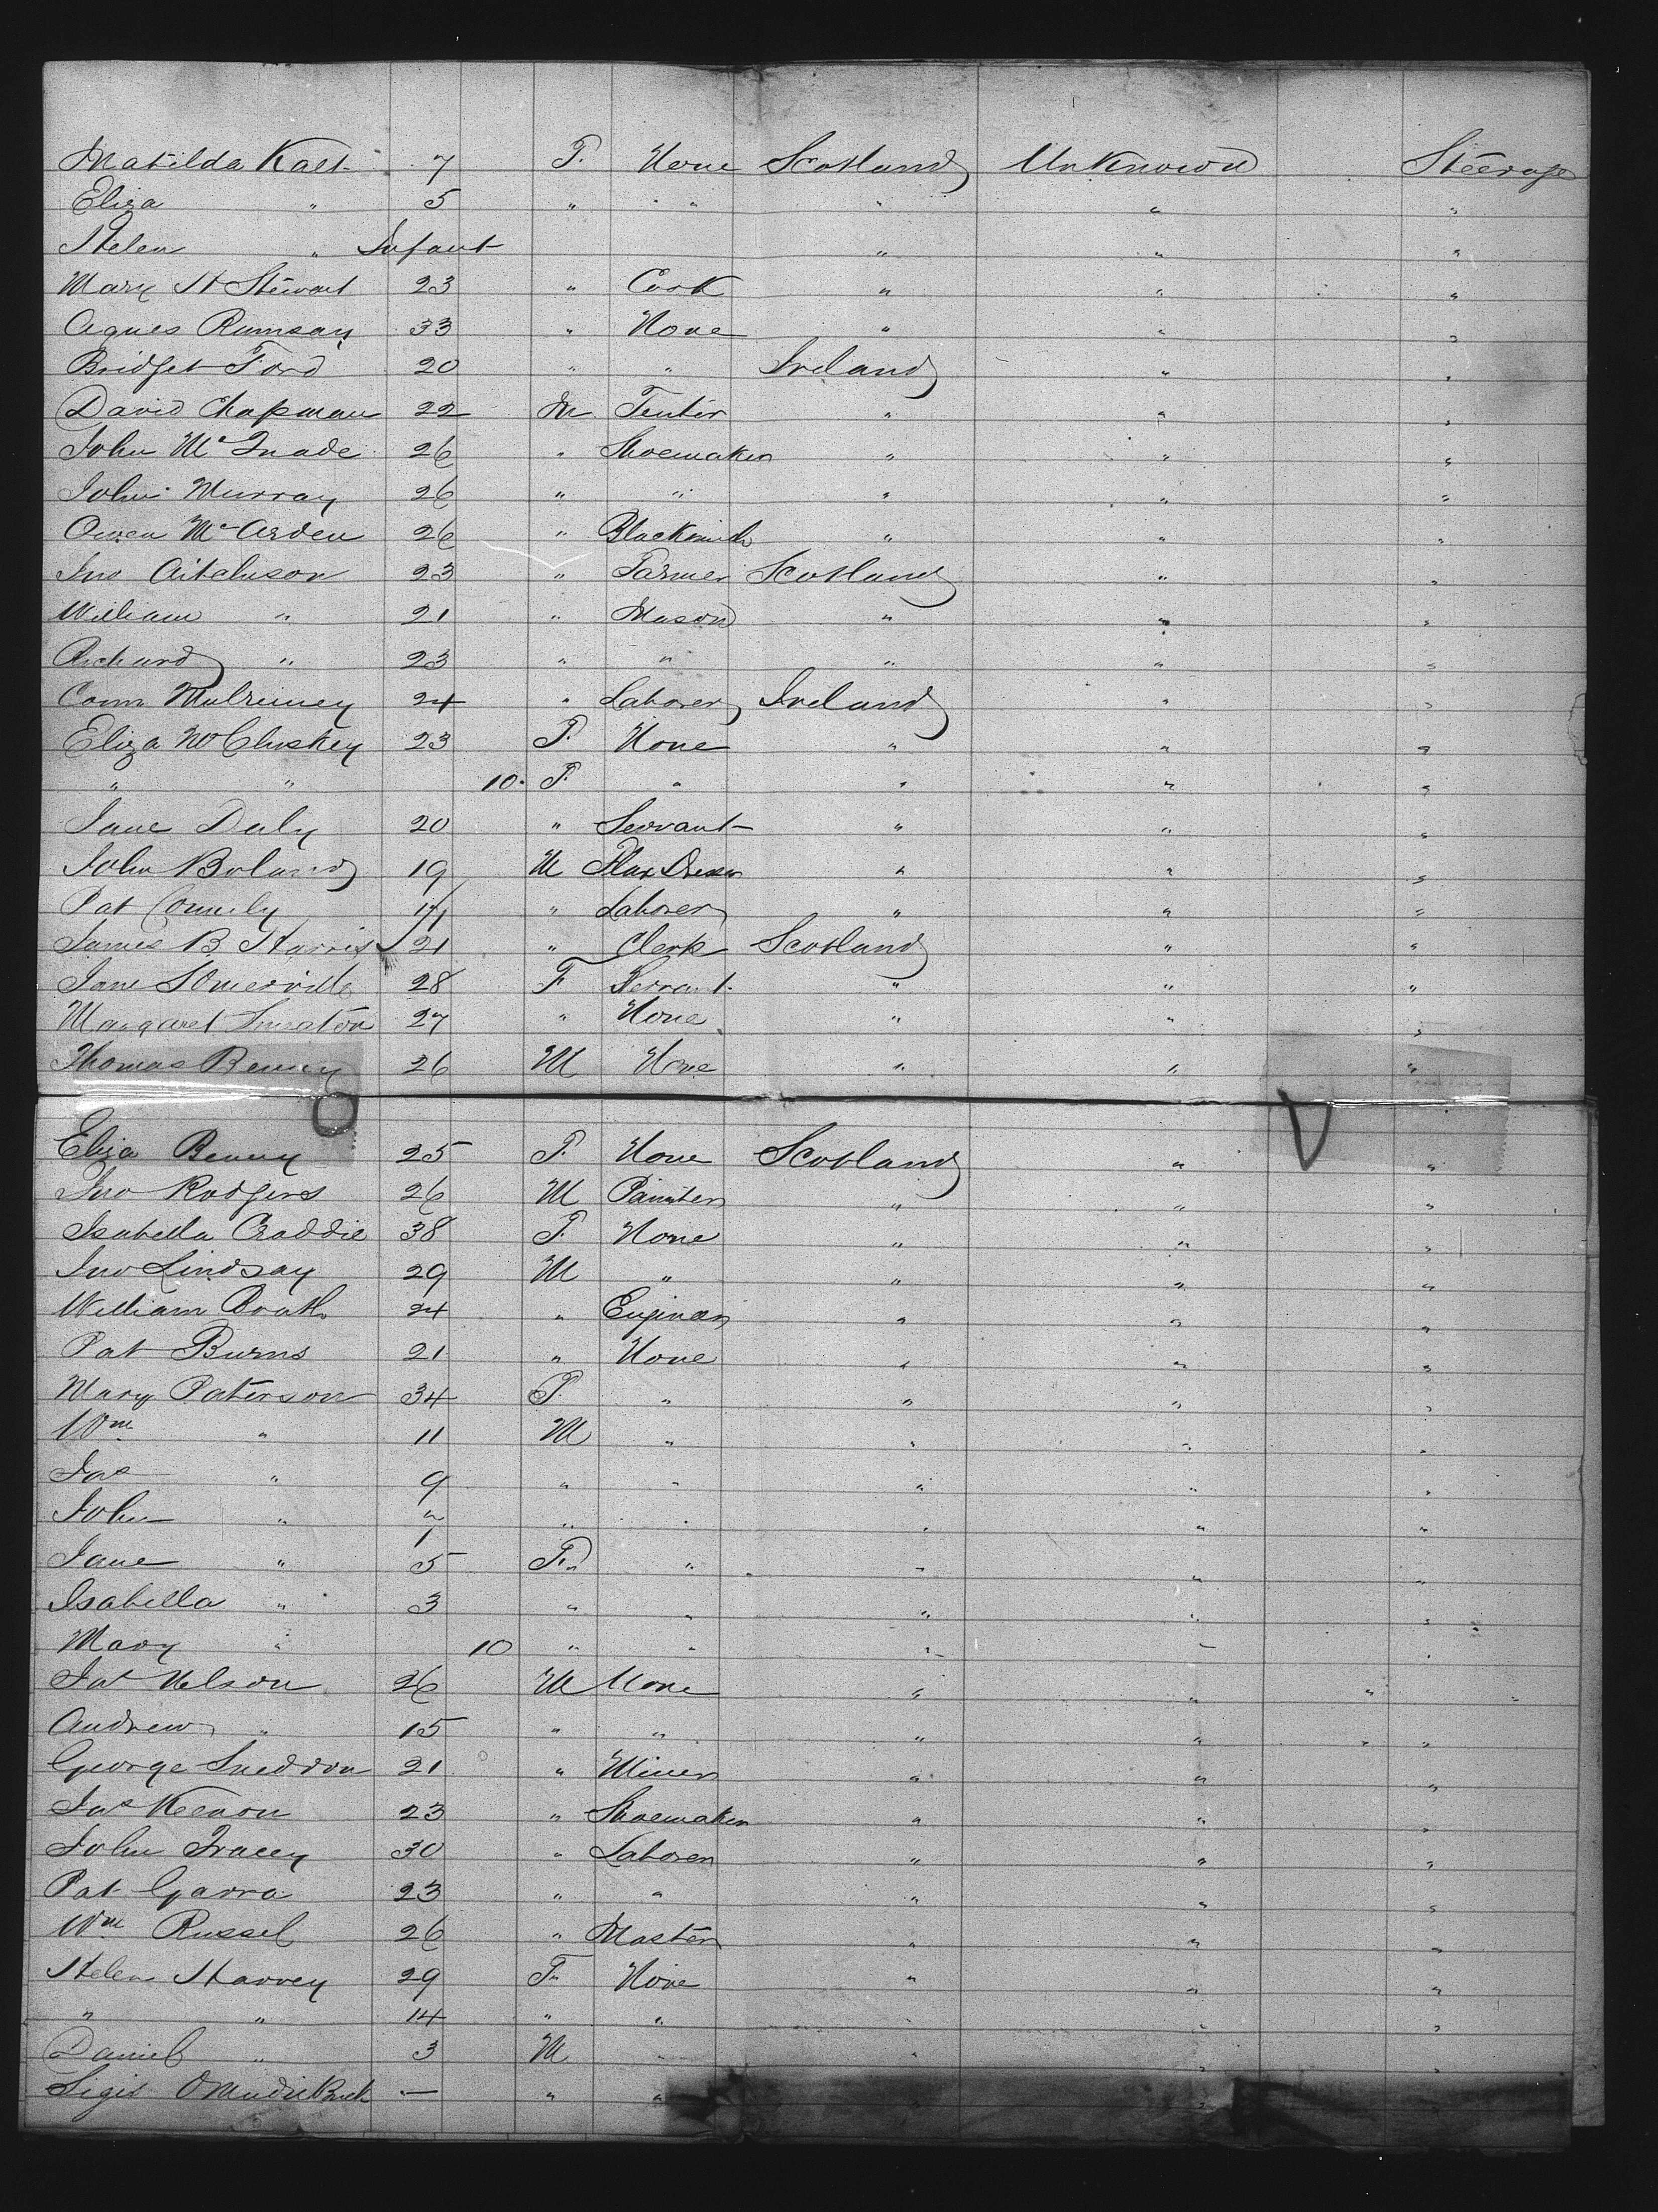 Matilda Kalt 7 F. None Scotland Unknown Steerage
Eliza " 5 " " " " "
Helen " Infant " " "
Mary H Stewart 23 " Cook " " "
Agnes Rumsay 33 " None " " "
Bridget Ford 20 " " Ireland " "
David Chapman 22 M Tenter " " "
John McQuade 26 " Shoemaker " " "
John Murray 26 " " " " "
Owen McArden 26 " Blacksmith " " "
Jno Aitchison 23 " Farmer Scotland " "
William " 21 " Mason " " "
Richard " 23 " " " " "
Conn 24 " Laborer Ireland " "
Eliza McCluskey 23 F. None " " "
" " 10. F. " " " "
Jane Daly 20 " Servant " " "
John Boland 19 M Flax Dresser " " "
Pat Connely " Laborer " " "
James B Harris 21 " Clerk Scotland " "
Jane Somerville 28 F Servant " " "
Margaret Smeaton 27 " None " " "
Thomas Benny 26 M None " " "
Eliza Benny 25 F. None Scotland " "
Jno Rodgers 26 M Painter " " "
Isabella Craddie 38 F. None " " "
Jno Lindsay 29 M " " " "
William Boath 24 " Engineer " " "
Pat Burns 21 " None " " "
Mary Paterson 34 F. " " " "
Wm " 11 M " " " "
Jas " 9 " " " " "
John " " " " " "
Jane " 5 F. " " " "
Isabella " 3 " " " " "
Mary " 10 " " " " "
Jas Nelson 26 M None " " " "
Andrew " 15 " " " " " "
George Sneddon 21 " Miner " " "
Jas Keenon 23 " Shoemaker " " "
John Tracey 30 " Laborer " " "
Pat Garra 23 " " " " "
Wm Russel 26 " Master " " "
Helen Harvey 29 F. None " " "
" " 14 " " " " "
Daniel " 3 M " " " "
— " "